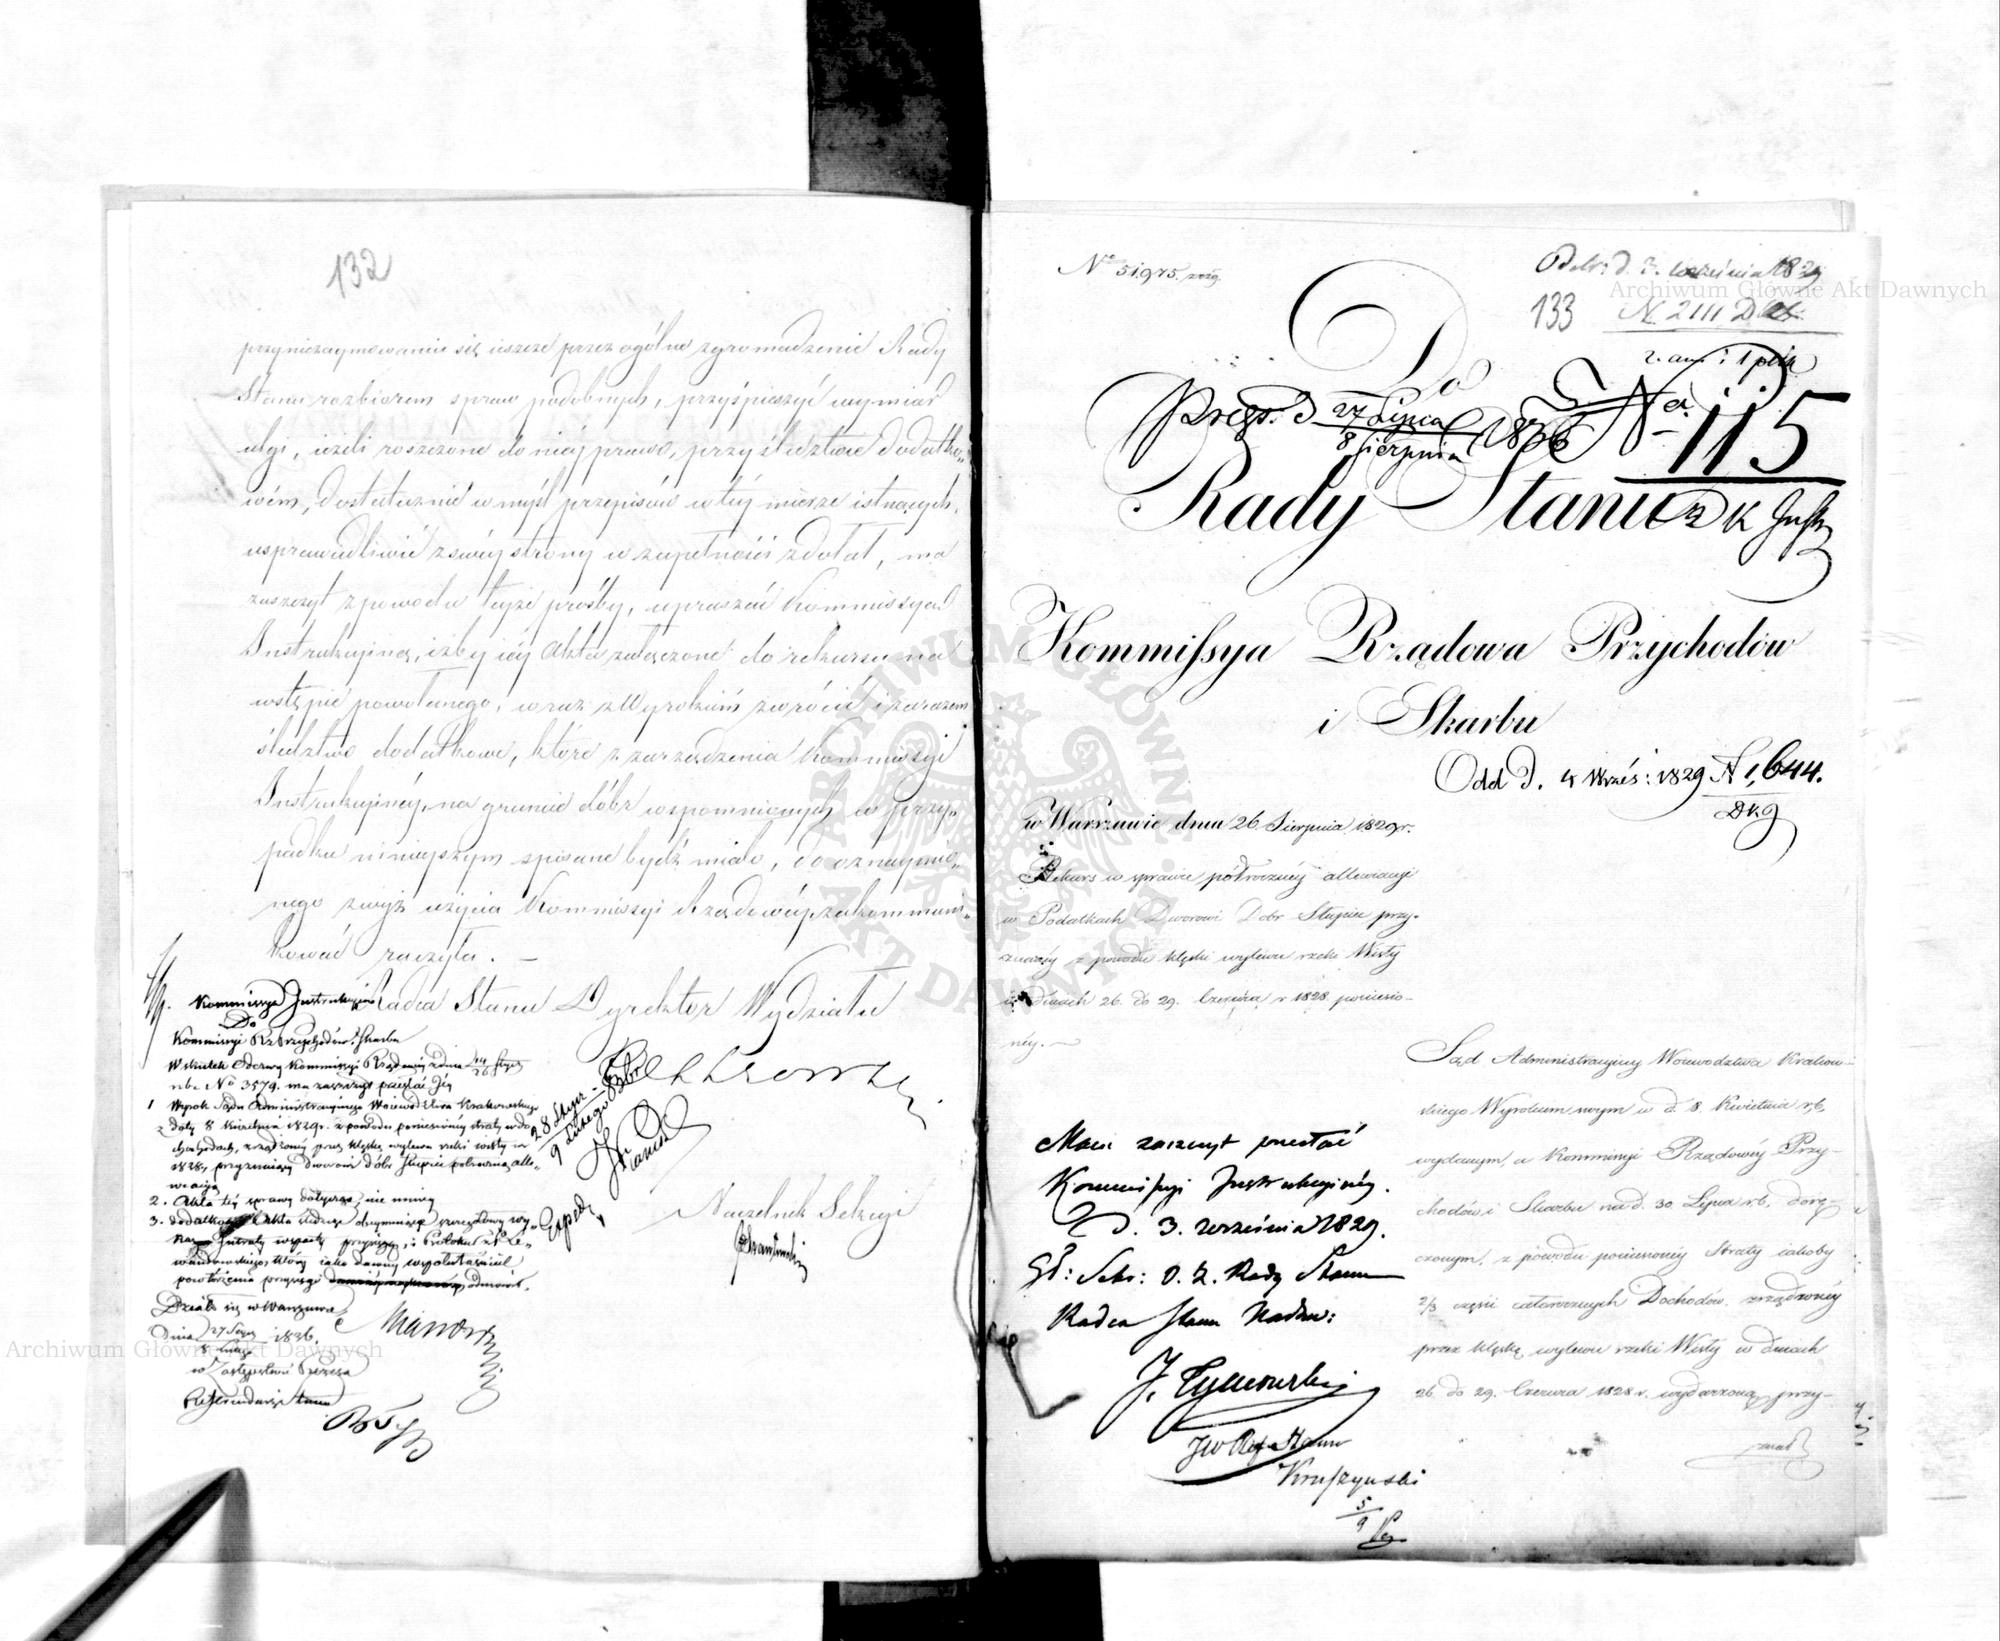 132
przyniezaymowaniu się ieszcze przez ogólne zgromadzenie Rady
Stanu rozbiorem spraw podobnych, przyśpieszyć wymiar
ulgi, ieżeli roszczone do niey prawo, przy śledztwie dodatko„
wém, dostatecznie w myśl przepisów w téy mierze istnących,
usprawiedliwić z swéy strony w zupełności zdołał, ma
zaszczyt z powodu teyże prośby, upraszać Kommissyą
Instrukcyiną, iżby iéy Akta załączone do rekursu na
wstępie powołanego, wraz z Wyrokiem zwrócić i zarazem
śledztwo dodatkowe, które z zarządzenia Kommissyi
Instrukcyinéy, na gruncie dóbr wspomnionych w przy„
padku ninieyszym spisane bydź miało, do oznaymio„
nego zwyż użycia Kommissyi Rządowéy zakommuni„
kować raczyła. —
Radca Stanu Dyrektor Wydziału
Kommissya Instrukcyina
Do
Kommissyi Rz. Przychodów i Skarbu
W skutek Odezwy Kommissyi Rządowéy z dnia 14/26 Stycz
r. b. No 3579. ma zaszczyt przesłać Jéy
1 Wyrok Sądu Administracyinego Woiewództwa Krakowskiego
z daty 8 Kwietnia 1829 r. z powodu poniesionéy straty w do
chodach, zrządzonéy przez klęskę wylewu rzeki Wisły w
1828, przyznaiący dworowi dóbr Słupia półroczną alle„
wiacyą
2. Akta téy sprawy dotyczące, nie mniéy
3. dodatkowe Akta śledcze obeymuiące szczegółowy wy„
kaz Intraty wsparty przysięgą, i Protokuł z Le„
wandowskiego, który iako dawny współwłaściciel
powtórzenia przysięgi odmówił.
Działo się w Warszawie
Dnia 27 Stycz / 8 Lutego 1836.
w Zastępstwie Prezesa
Referendarz Stanu
28 Stycz
9 Lutego 836
Exped.
Naczelnik Sekcyi
No 51,975. 1829.
Odebr: d. 3. Września 1829
133
N. 2111 D
z. an: 1 plik
Do
Prez. d 27 Lipca / 8 Sierpnia 1836 Na 115
Rady Stanu
z K Just
Kommissya Rządowa Przychodów
i Skarbu
Odd D. 4 Wrześ: 1829 N 1,644.
Dkg
w Warszawie dnia 26 Sierpnia 1829 r.
Rekurs w sprawie półroczney allewiacyi
w Podatkach Dworowi Dóbr Słupia przy-
znanéy z powodu klęski wylewu rzeki Wisły
w Dniach 26. do 29. Czerwca r 1828 poniesio-
néy. —
Sąd Administracyiny Woiewództwa Krakow-
skiego Wyrokiem swym w d. 8. Kwietnia r. b.
wydanym, a Kommissyi Rządowéy Przy-
chodów i Skarbu na d. 30 Lipca r. b. dorę-
czonym, z powodu poniesionéy Straty iakoby
2/3 części całorocznych Dochodów, zrządzonéy
przez klęskę wylewu rzeki Wisły w dniach
26. do 29. Czerwca 1828 r. wydarzoną, przy-
znał
Mam zaszczyt przesłać
Kommissyi Instrukcyinéy.
D. 3. Września 1829.
Sekr: Rady Stanu
Radca Stanu Nadzw:
J. Tymowski
JW Ref. Stanu
Kruszynski
5/9
Archiwum Główne Akt Dawnych
Archiwum Główne Akt Dawnych
ARCHIWUM GŁÓWNE AKT DAWNYCH